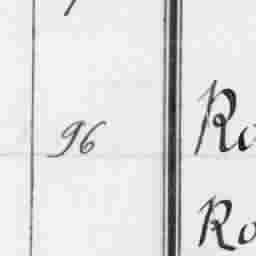 96 Ro
Ro